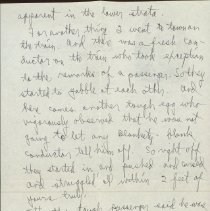 apparent in the lower strata.
For another thing I went to town on
the train. And there was a fresh con-
ductor on the train who took exception
to the remarks of a passenger. So they
started to gabble at each other. And
here comes another tough egg who
vigorously observed that he was not
going to let any blankety-blank
conductor tell him off. So right off
they started in and pushed and
and struggled all within 2 feet of
yours truly.
tough passenger said he was